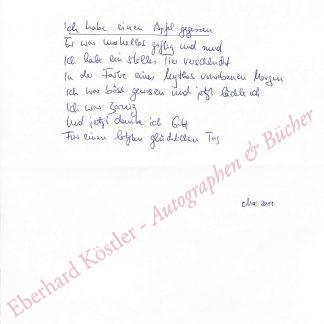 Ich habe einen Apfel gegessen
Er war makellos giftig und rund
Ich habe ein stolzes Tier verschluckt
In der Farbe eines leglos umwobenen Morgen
Ich war böse gewesen und jetzt lächle ich
Ich war zornig
Und jetzt danke ich Gott
Für einen letzten glücklichen Tag
2011
Eberhard Köstler - Autographen & Bücher